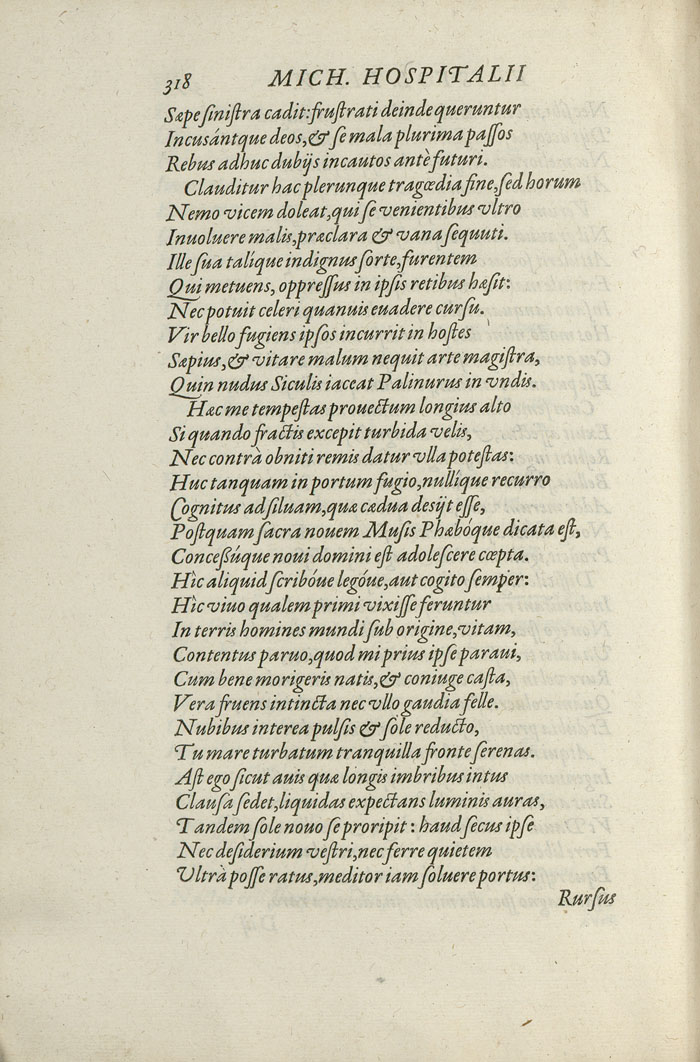 318 MICH. HOSPITALII
Sæpe sinistra cadit: frustrati deinde queruntur
Incusántque deos, & se mala plurima passos
Rebus adhuc dubijs incautos antè futuri.
Clauditur hac plerunque tragœdia fine, sed horum
Nemo vicem doleat, qui se venientibus vltro
Inuoluere malis, præclara & vana sequuti.
Ille sua talique indignus sorte, furentem
Qui metuens, oppressus in ipsis retibus hæsit:
Nec potuit celeri quanuis euadere cursu.
Vir bello fugiens ipsos incurrit in hostes
Sæpius, & vitare malum nequit arte magistra,
Quin nudus Siculis iaceat Palinurus in vndis.
Hæc me tempestas prouectum longius alto
Si quando fractis excepit turbida velis,
Nec contrà obniti remis datur vlla potestas:
Huc tanquam in portum fugio, nullíque recurro
Cognitus ad siluam, quæ cædua desijt esse,
Postquam sacra nouem Musis Phæbóque dicata est,
Conceßúque noui domini est adolescere cœpta.
Hîc aliquid scribóue legóue, aut cogito semper:
Hîc viuo qualem primi vixisse feruntur
In terris homines mundi sub origine, vitam,
Contentus paruo, quod mi prius ipse paraui,
Cum bene morigeris natis, & coniuge casta,
Vera fruens intincta nec vllo gaudia felle.
Nubibus interea pulsis & sole reducto,
Tu mare turbatum tranquilla fronte serenas.
Ast ego sicut auis quæ longis imbribus intus
Clausa sedet, liquidas expectans luminis auras,
Tandem sole nouo se proripit: haud secus ipse
Nec desiderium vestri, nec ferre quietem
Vltrà posse ratus, meditor iam soluere portus:
Rursus